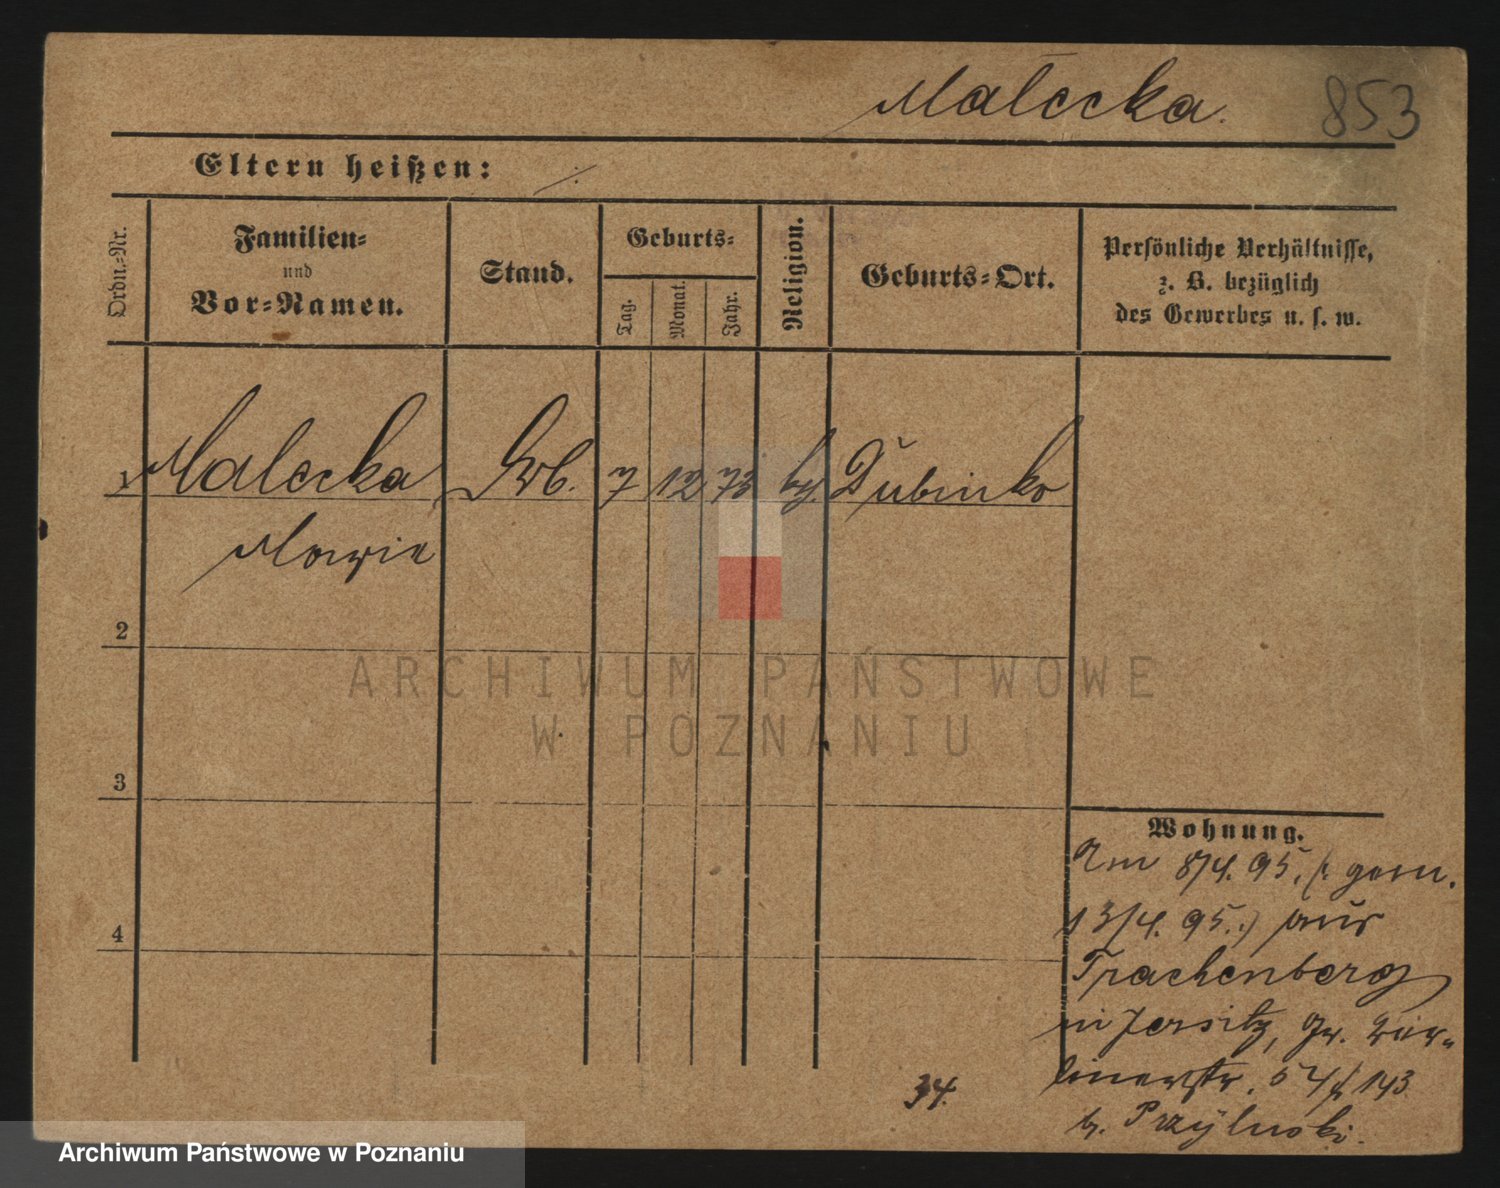 Malecka. 853
Eltern heißen: ./.
Ordn.-Nr.
Familien-
und
Vor-Namen.
Stand.
Geburts-
Tag.
Monat.
Jahr.
Religion.
Geburts-Ort.
Persönliche Verhältnisse,
z. B. bezüglich
des Gewerbes u. s. w.
1 Malecka 7 12 73 Dubinko
Marie
2
ARCHIWUM PAŃSTWOWE
W POZNANIU
3
Wohnung.
Am 8/4. 95. (: gem.
13/4. 95. :) aus
Trachenberg
in Jersitz, Gr. Ber-
linerstr. 54 / 143
b. Przylinski.
4
34.
Archiwum Państwowe w Poznaniu